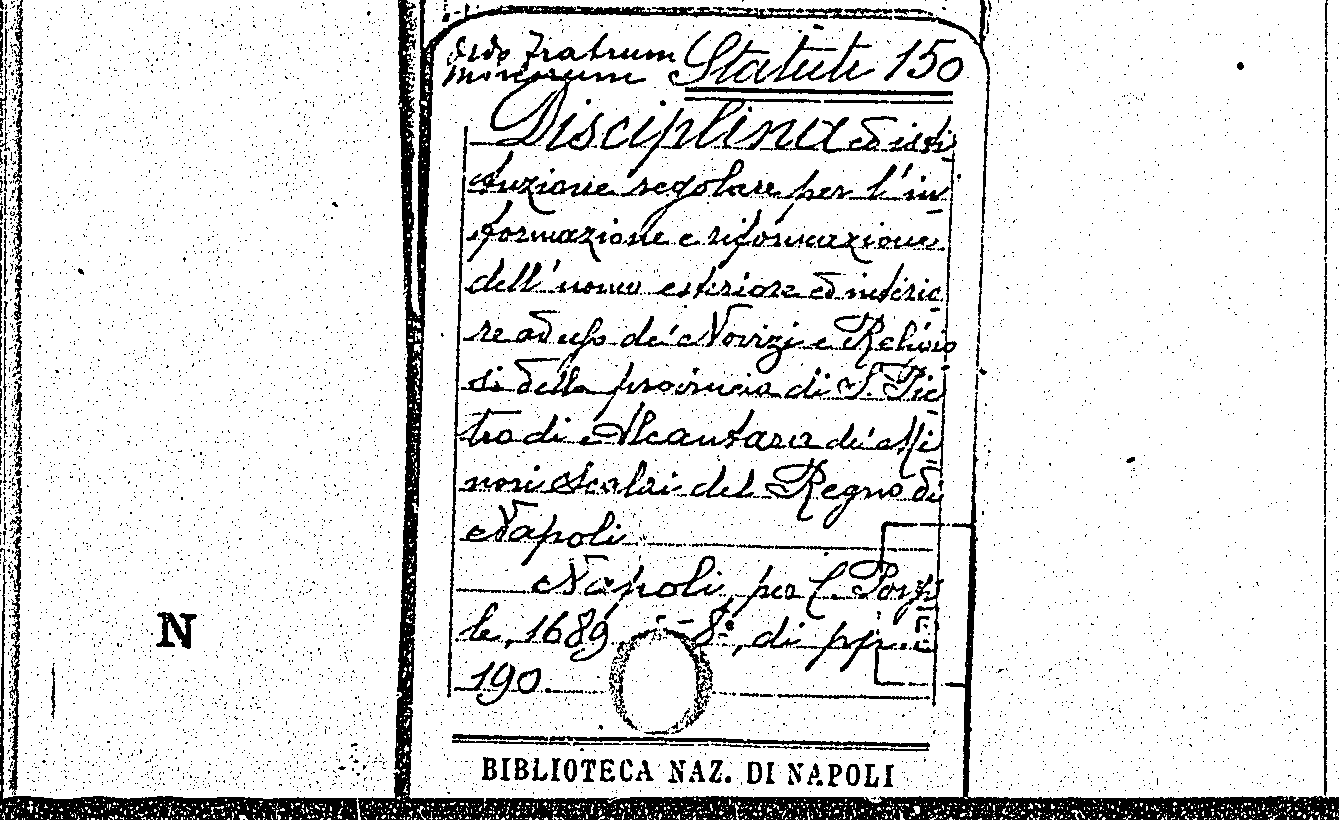 Ordo Fratrum Statuti 150
Minorum
Disciplina ed isti-
tuzione regolare per l'in-
formazione e riformazione
dell'uomo esteriore ed interio-
re ad uso de' Novizj e Religio
si della provincia di S. Pie-
tro di Alcantara de' Mi-
nori Scalzi del Regno di
Napoli
Napoli, per C. Porpi-
le, 1689 8°, di pp.
190.
BIBLIOTECA NAZ. DI NAPOLI
N